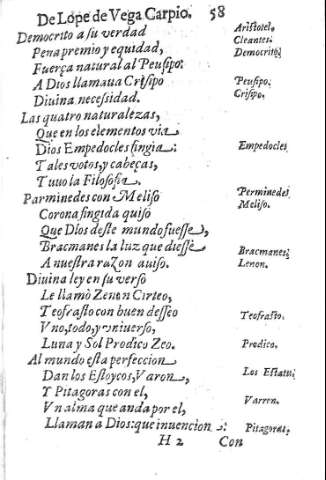 De Lope de Vega Carpio. 58
Democrito a su verdad
Pena premio y equidad,
Fuerça natural al Peusipo:
A Dios llamaua Crisipo
Diuina necessidad.
Las quatro naturalezas,
Que en los elementos via
Dios Empedocles fingia:
Tales votos, y cabeças,
Tuuo la Filosofia.
Parminedes con Meliso
Corona fingida quiso
Que Dios deste mundo fuesse,
Bracmanes la luz que diesse
A nuestra razon auiso.
Diuina ley en su verso
Le llamò Zenan Cirteo,
Teofrasto con buen desseo
Vno, todo, y vniuerso,
Luna y Sol Prodico Zeo.
Al mundo esta perfeccion
Dan los Estoycos, Varon,
Y Pitagoras con el,
Vn alma que anda por el,
Llaman a Dios: que inuencion:
H 2 Con
Aristotel.
Cleantes.
Democrito
Peusipo.
Crisipo.
Empedocles
Perminedes
Meliso.
Bracmanes
Lenon.
Teofrasto.
Prodico.
Los Estatui
Varren.
Pitagoras.